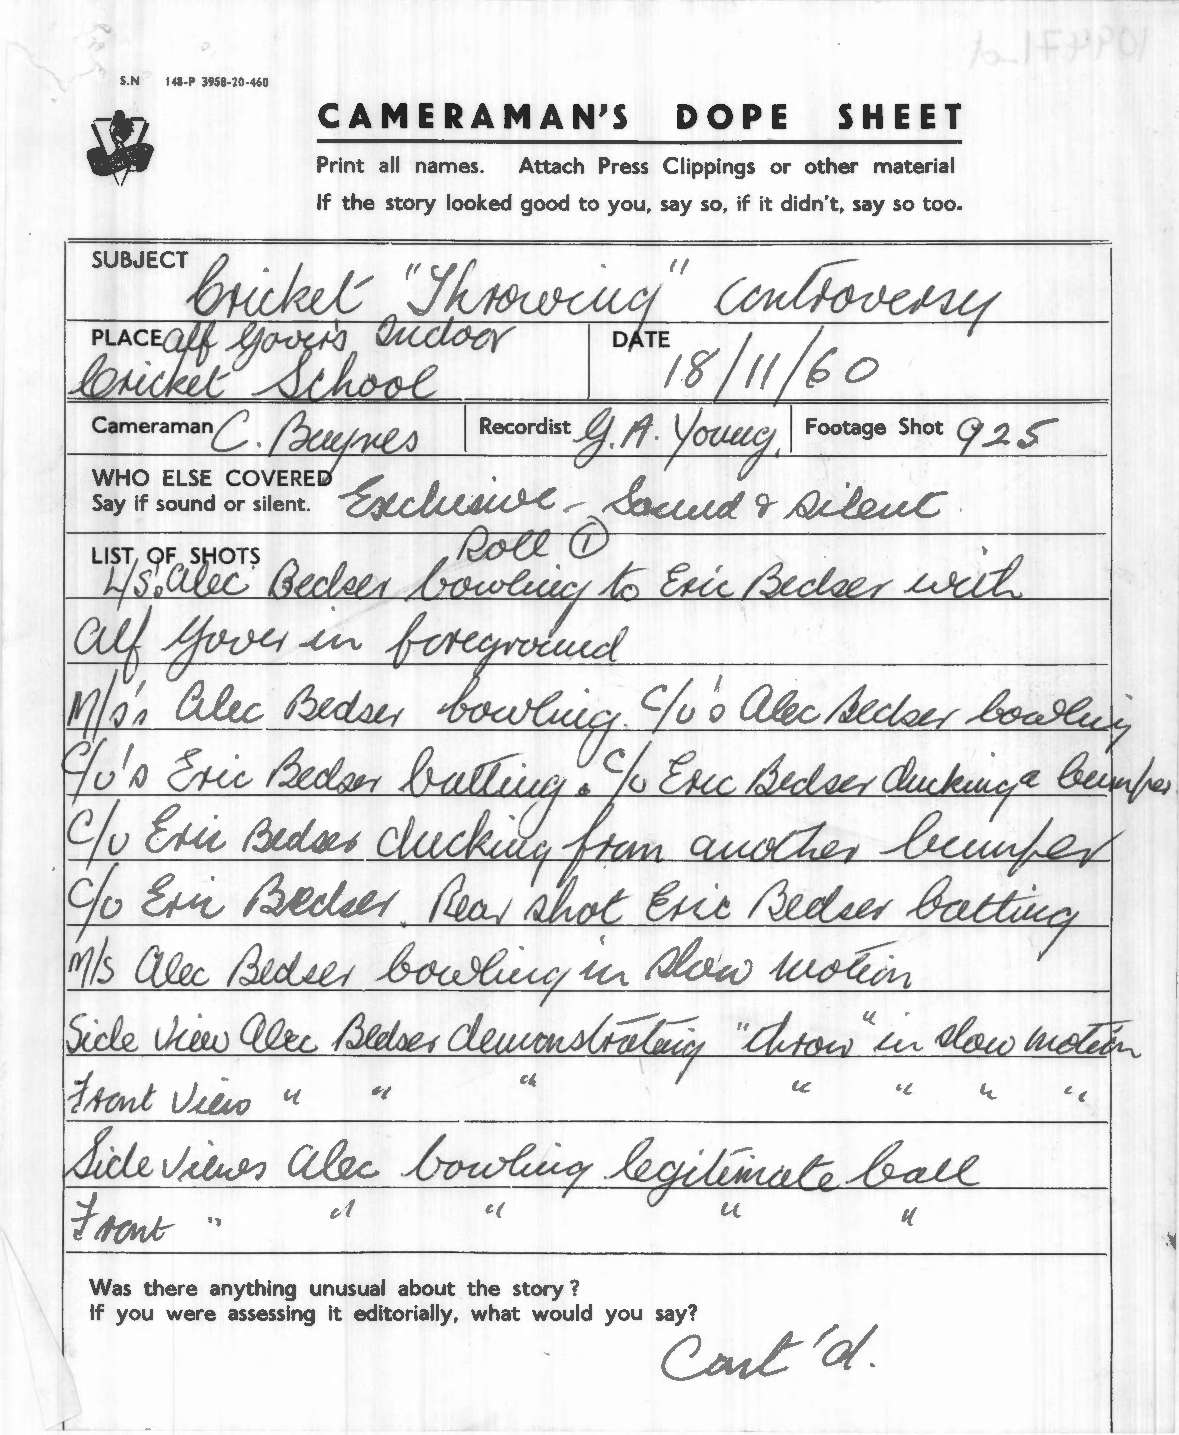 S.N 148-P 3958-20-460
CAMERAMAN'S DOPE SHEET
Print all names. Attach Press Clippings or other material
If the story looked good to you, say so, if it didn't, say so too.
SUBJECT Cricket "Throwing" controversy
PLACE Alf Gover's Indoor
Cricket School
DATE 18/11/60
Cameraman C. Baynes Recordist G.A. Young. Footage Shot 925
WHO ELSE COVERED
Say if sound or silent. Exclusive - Sound & Silent
LIST OF SHOTS Roll 1
L/S. Alec Bedser bowling to Eric Bedser with
Alf Gover in foreground
M/S's Alec Bedser bowling. C/U's Alec Bedser bowling
C/U's Eric Bedser batting. C/U Eric Bedser ducking a bumper
C/U Eric Bedser ducking from another bumper
C/U Eric Bedser. Rear shot Eric Bedser batting
M/S Alec Bedser bowling in slow motion
Side View Alec Bedser demonstrating "throw" in slow motion
Front View " " " " " " "
Side Views Alec bowling legitimate ball
Front " " " " "
Was there anything unusual about the story?
If you were assessing it editorially, what would you say?
Cont'd.